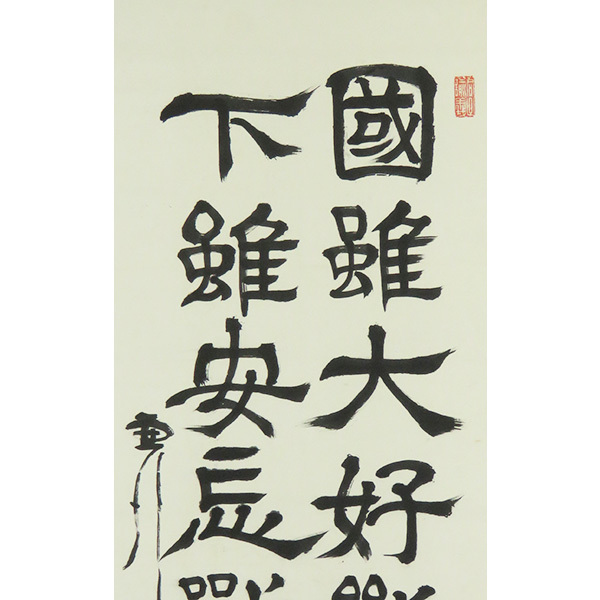 國雖大好戰
下雖安忘戰